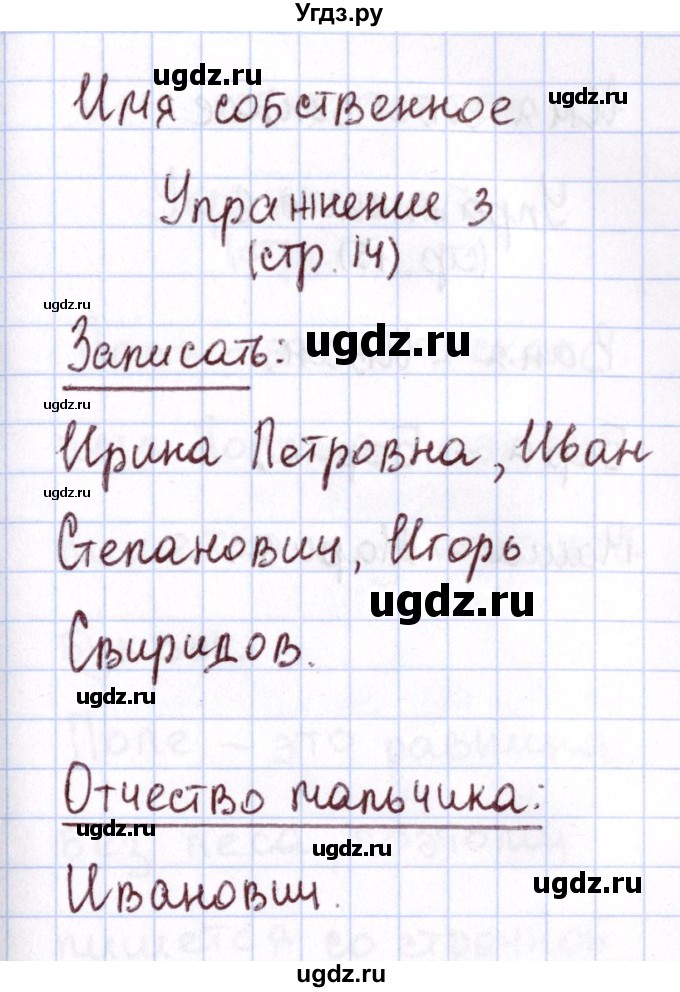 Угдз.ру
ugdz.ru
ugdz.ru
Имя собственное
Упражнение 3
(стр. 14)
ugdz.ru
Записать: ugdz.ru
ugdz.ru
Ирина Петровна, Иван
ugdz.ru
Степанович, Игорь
ugdz.ru
Свиридов.
ugdz.ru
Отчество мальчика:
ugdz.ru
ugdz.ru
Иванович.
ugdz.ru
ugdz.ru